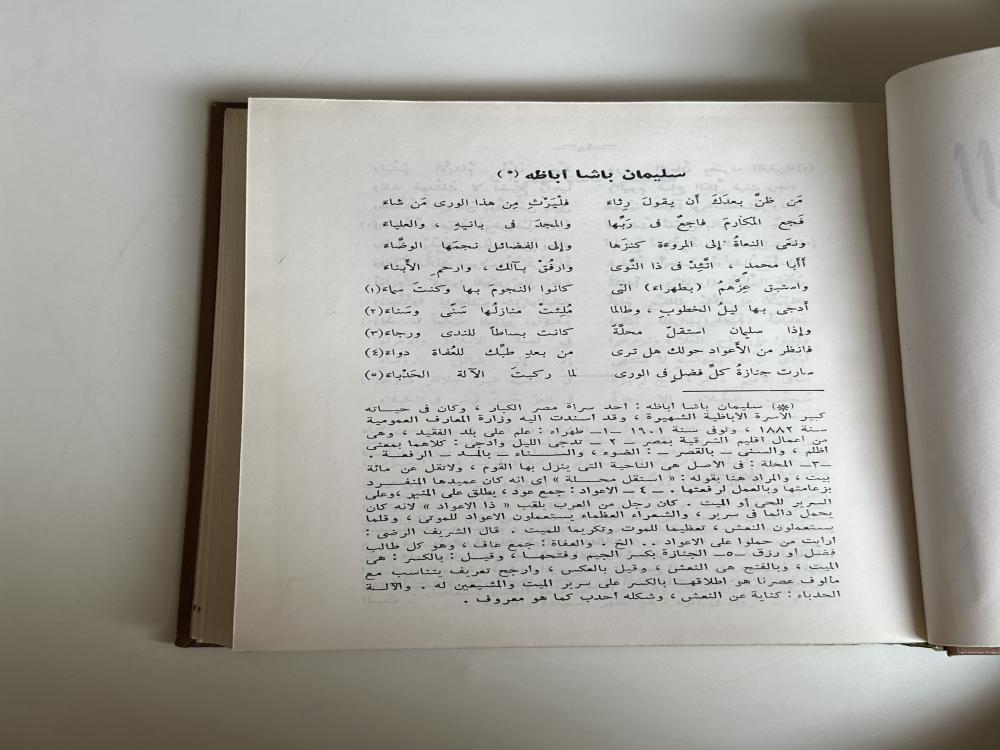 سليمان باشا أباظه (*)
مَن ظنَّ بعدكَ أن يقولَ رِثاء فلْيَرْثِ مِن هذا الورى مَن شاء
فَجع المكارمَ فاجعٌ فى رَبِّها والمجدَ فى بانيهِ ، والعلياء
ونعَى النعاةُ إلى المروءة كنزَها وإلى الفضائل نجمَها الوضَّاء
أَأَبا محمدٍ ، اتَّئِدْ فى ذا النَّوى وارفُقْ بـآلك ، وارحمِ الأَبناء
واستبق عِزَّهمُ (بطهراء) التى كانوا النجومَ بها وكنتَ سماء(١)
أَدجى بها ليلُ الخطوبِ ، وطالما مُلِئتْ منازلُها سَنًى وسَناء(٢)
وإذا سليمان استقلّ محلَّةً كانت بساطاً للندى ورجاء(٣)
فانظر من الأَعواد حولك هل ترى من بعدِ طبِّك للعُفاة دواء(٤)
سارت جنازةُ كلِّ فضلٍ فى الورى لما ركبتَ الآلة الحَدْباء(٥)
(*) سليمان باشا أباظه : أحد سراة مصر الكبار ، وكان فى حياته
كبير الأسرة الأباظية الشهيرة ، وقد أسندت اليه وزارة المعارف العمومية
سنة ١٨٨٢ ، وتوفى سنة ١٩٠١ -١- طهراء : علم على بلد الفقيد ، وهى
من أعمال اقليم الشرقية بمصر - ٢ - تدجى الليل وأدجى : كلاهما بمعنى
أظلم ، والسنى - بالقصر - : الضوء ، والسـناء - بالمـد - الرفعـة .
-٣- المحلة : فى الأصل هى الناحية التى ينزل بها القوم ، ولاتقل عن مائة
بيت ، والمراد هنا بقوله : « استقل محـلة » أى انه كان عميدها المنفـرد
بزعامتها وبالعمل لرفعتها . - ٤ - الأعواد : جمع عود ، يطلق على المنبر ،وعلى
السرير للحى أو الميت . كان رجل من العرب يلقب « ذا الأعواد » لأنه كان
يحمل دائما فى سرير ، والشعراء العظماء يستعملون الأعواد للموتى ، وقلما
يستعملون النعش ، تعظيما للموت وتكريما للميت . قال الشريف الرضى :
أرأيت من حملوا على الأعواد . . الخ . والعفاة : جمع عاف ، وهو كل طالب
فضل أو رزق -٥- الجنازة بكسر الجيم وفتحها ، وقيـل : بالكسر : هى
الميت ، وبالفتح هى النعش ، وقيل بالعكس ، وأرجح تعريف يتناسب مع
مألوف عصرنا هو اطلاقها بالكسر على سرير الميت والمشيعين له . والآلـة
الحدباء : كناية عن النعش ، وشكله أحدب كما هو معروف .